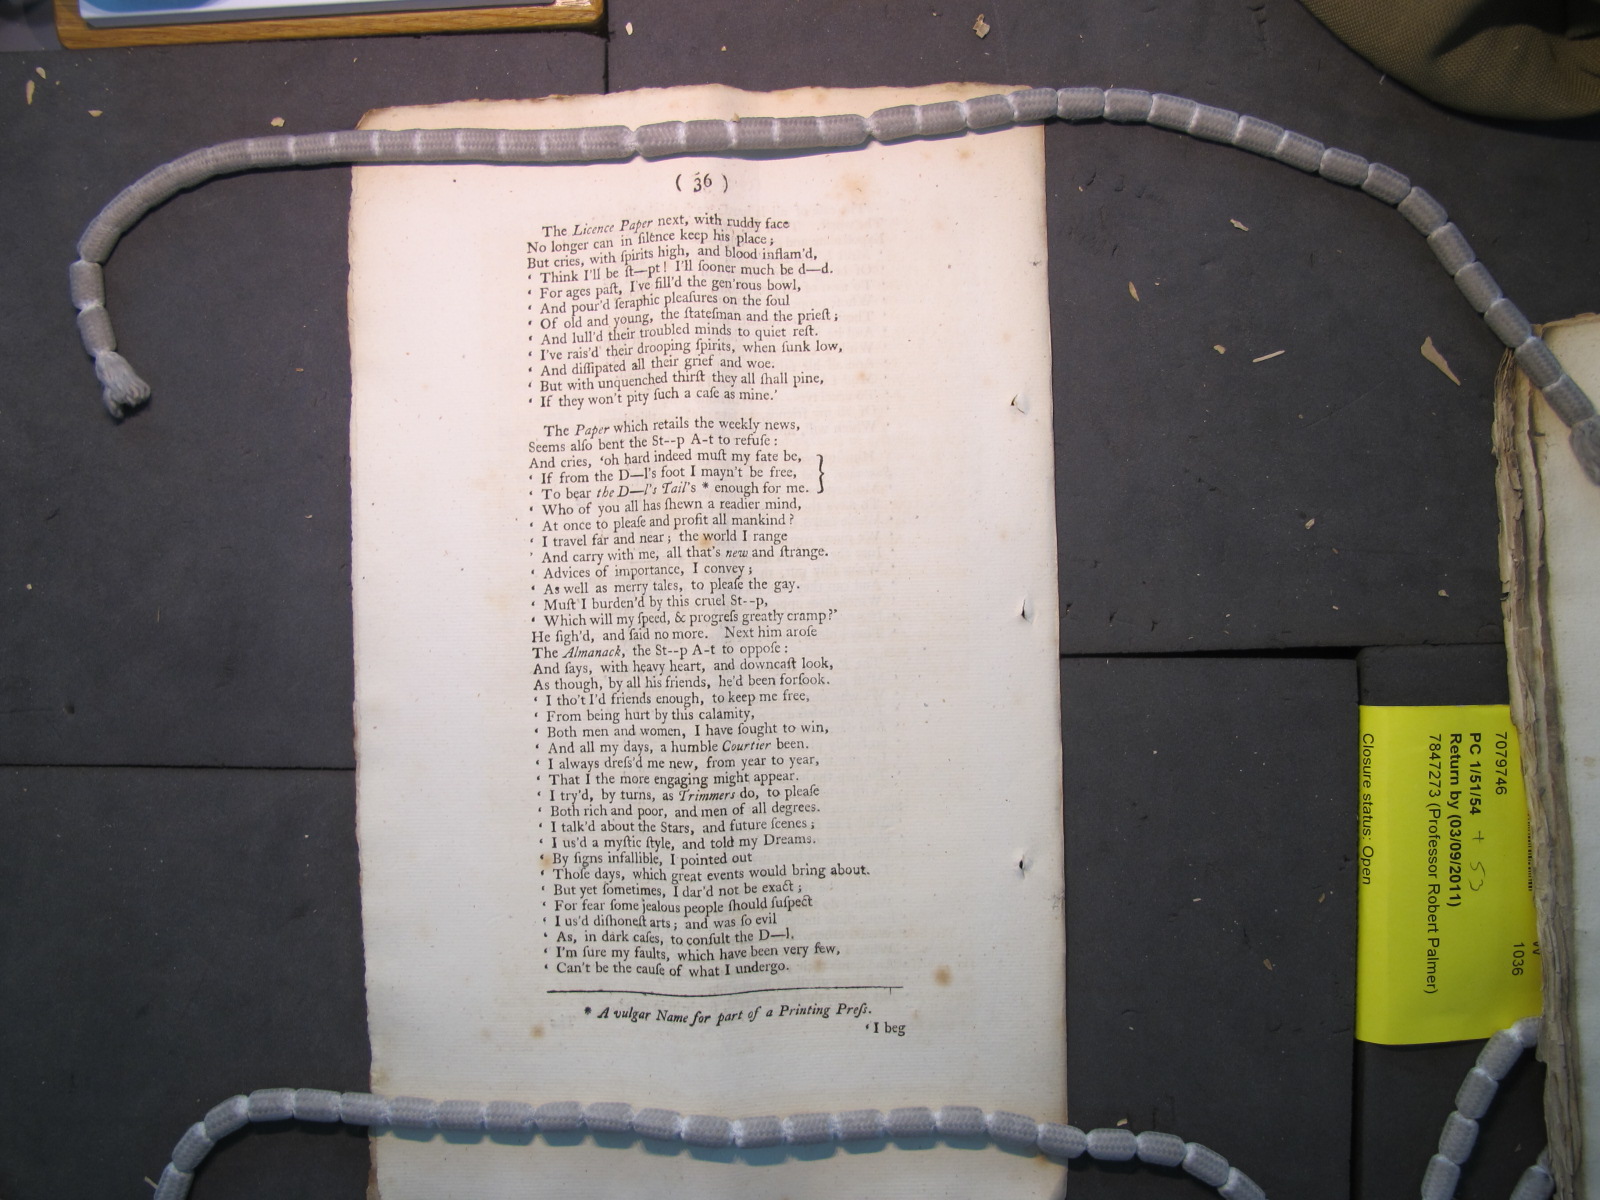 ( 36 )
The Licence Paper next, with ruddy face
No longer can in ſilence keep his place;
But cries, with ſpirits high, and blood inflam'd,
‘ Think I'll be ſt—pt! I'll ſooner much be d—d.
‘ For ages paſt, I've fill'd the gen'rous bowl,
‘ And pour'd ſeraphic pleaſures on the ſoul
‘ Of old and young, the ſtateſman and the prieſt;
‘ And lull'd their troubled minds to quiet reſt.
‘ I've rais'd their drooping ſpirits, when ſunk low,
‘ And diſſipated all their grief and woe.
‘ But with unquenched thirſt they all ſhall pine,
‘ If they won't pity ſuch a caſe as mine.’
The Paper which retails the weekly news,
Seems alſo bent the St--p A-t to refuſe:
And cries, ‘oh hard indeed muſt my fate be,
‘ If from the D—l's foot I mayn't be free,
‘ To bear the D—l's Tail's * enough for me. }
‘ Who of you all has ſhewn a readier mind,
‘ At once to pleaſe and profit all mankind?
‘ I travel far and near; the world I range
’ And carry with me, all that's new and ſtrange.
‘ Advices of importance, I convey;
‘ As well as merry tales, to pleaſe the gay.
‘ Muſt I burden'd by this cruel St--p,
‘ Which will my ſpeed, & progreſs greatly cramp?’
He ſigh'd, and ſaid no more. Next him aroſe
The Almanack, the St--p A-t to oppoſe:
And ſays, with heavy heart, and downcaſt look,
As though, by all his friends, he'd been forſook.
‘ I tho't I'd friends enough, to keep me free,
‘ From being hurt by this calamity,
‘ Both men and women, I have ſought to win,
‘ And all my days, a humble Courtier been.
‘ I always dreſs'd me new, from year to year,
‘ That I the more engaging might appear.
‘ I try'd, by turns, as Trimmers do, to pleaſe
‘ Both rich and poor, and men of all degrees.
‘ I talk'd about the Stars, and future ſcenes;
‘ I us'd a myſtic ſtyle, and told my Dreams.
‘ By ſigns infallible, I pointed out
‘ Thoſe days, which great events would bring about.
‘ But yet ſometimes, I dar'd not be exact;
‘ For fear ſome jealous people ſhould ſuſpect
‘ I us'd diſhoneſt arts; and was ſo evil
‘ As, in dark caſes, to conſult the D—l.
‘ I'm ſure my faults, which have been very few,
‘ Can't be the cauſe of what I undergo.
* A vulgar Name for part of a Printing Preſs.
‘ I beg
7079746
1036
PC 1/51/54 + 53
Return by (03/09/2011)
7847273 (Professor Robert Palmer)
Closure status: Open